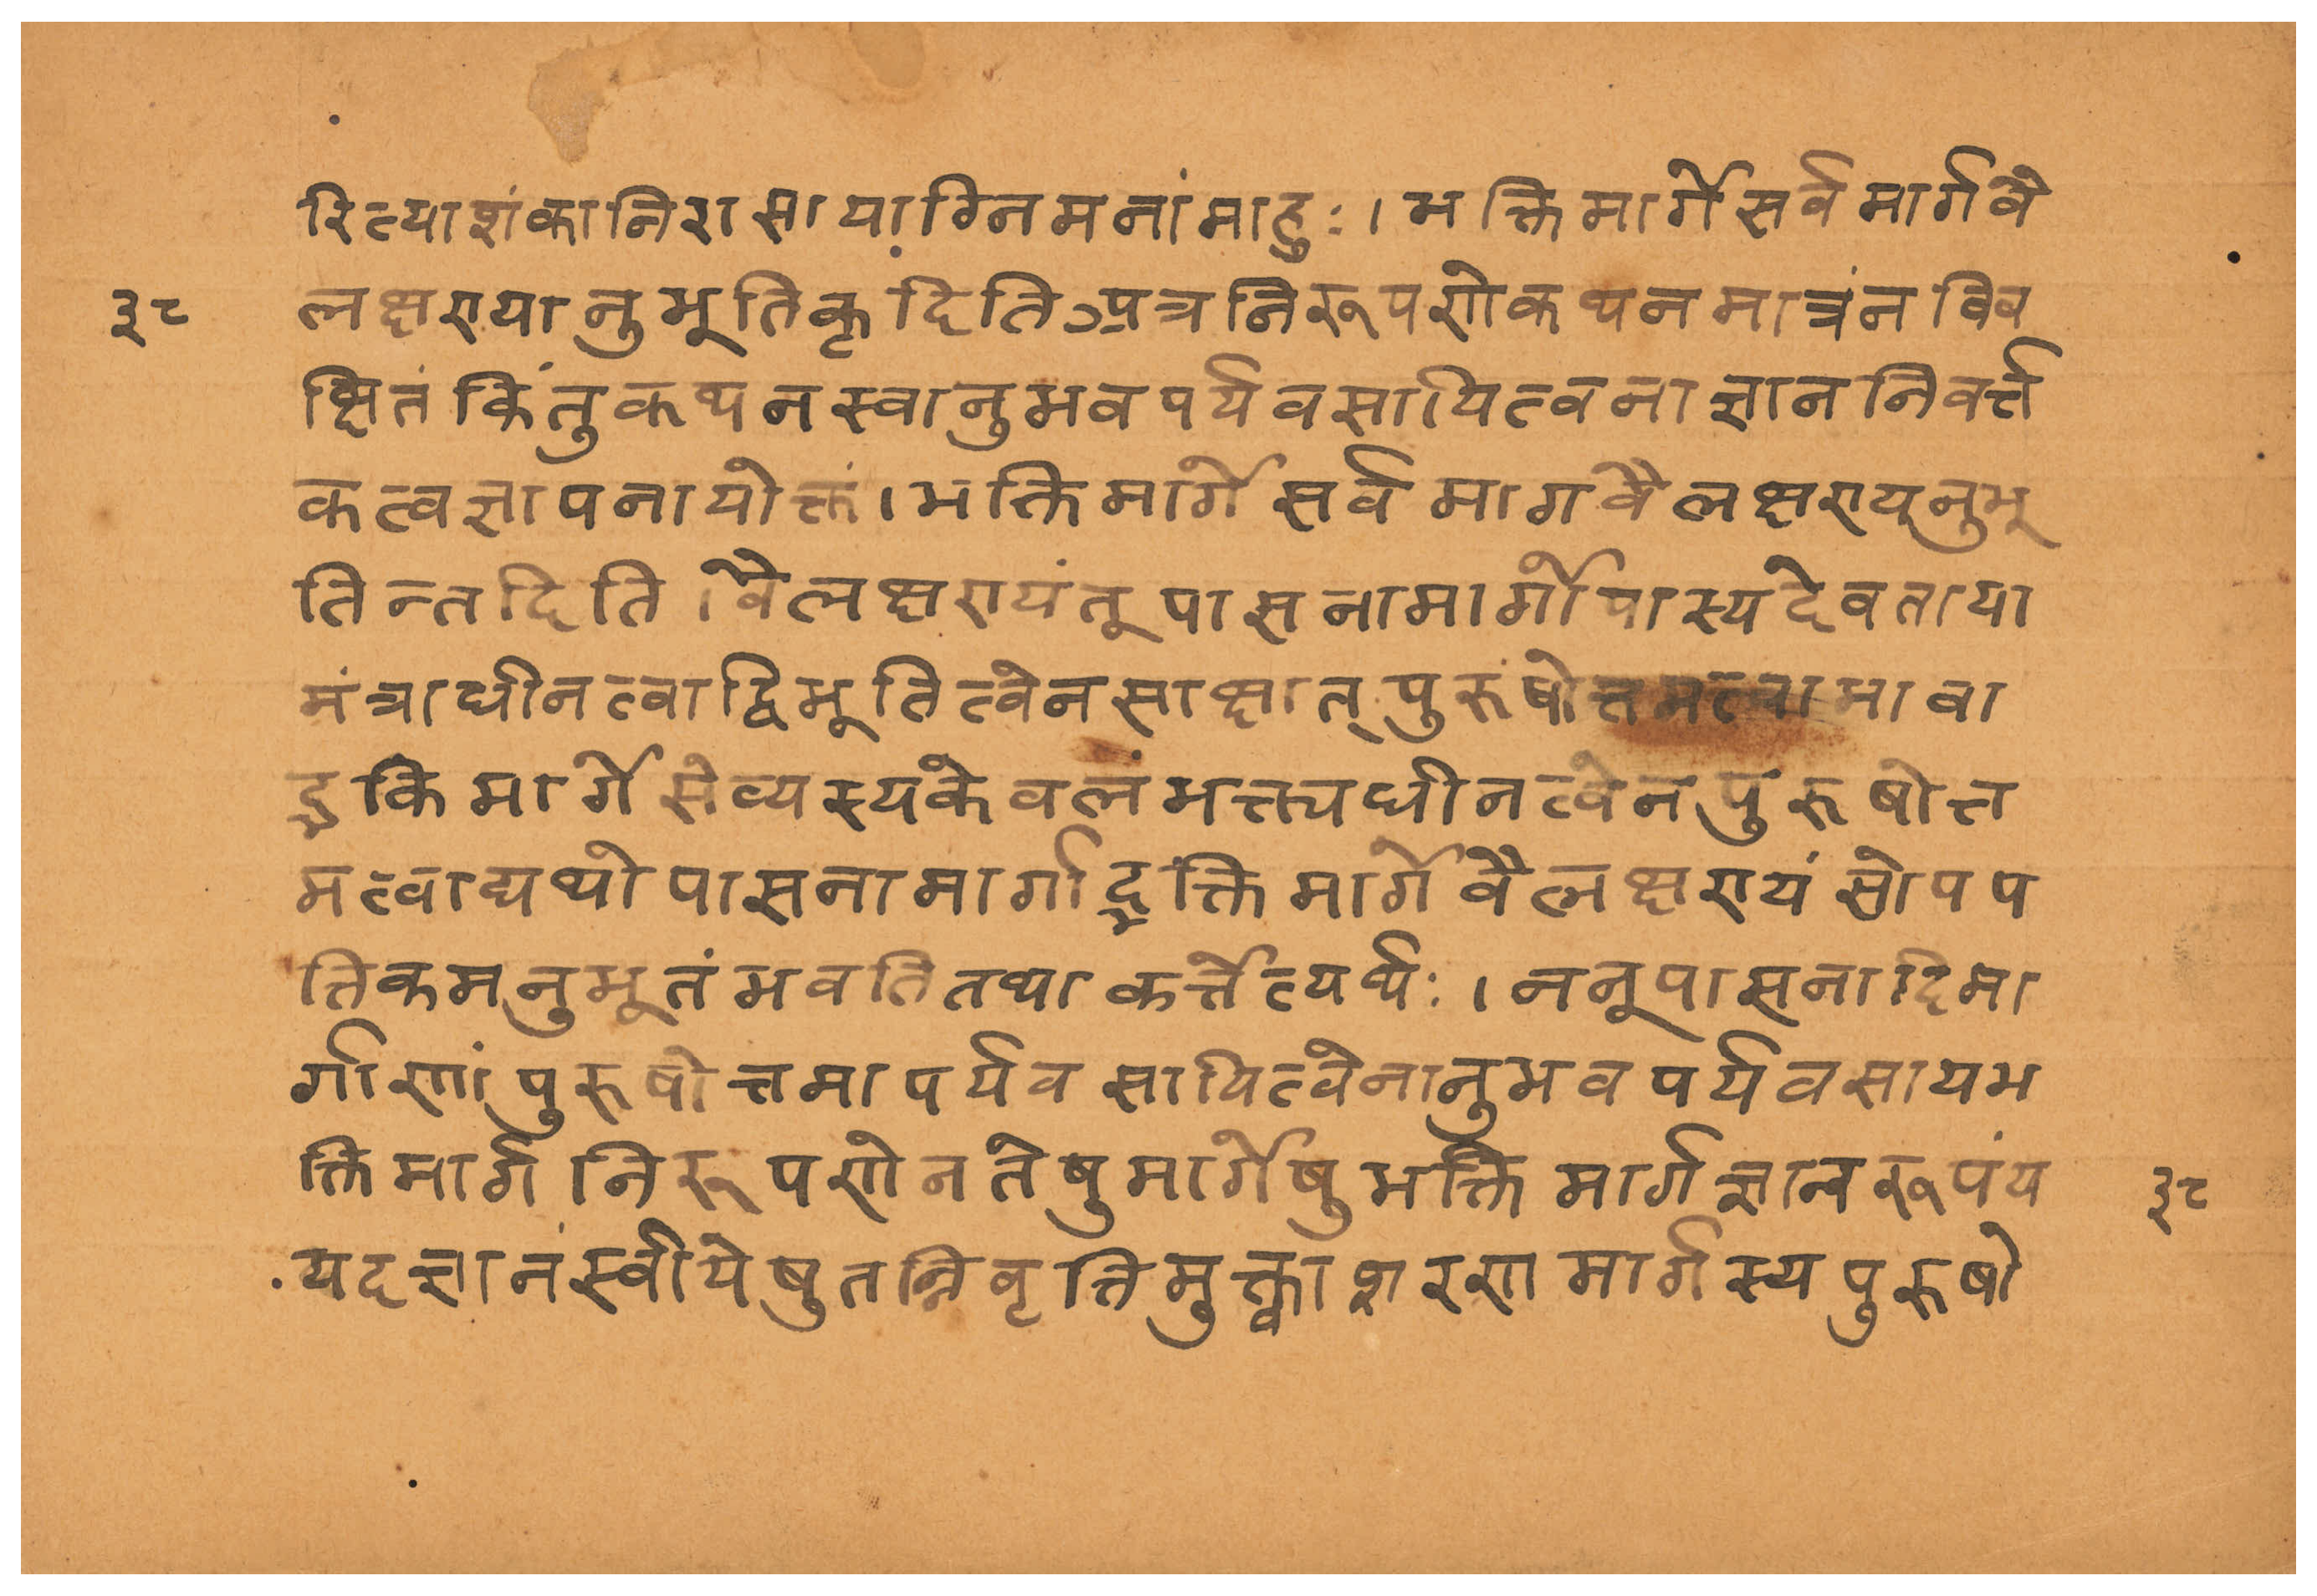 रित्याशंकानिरासायाग्निमनांमाहुः।भक्तिमार्गेसर्वमार्गवै
३८ लक्षण्यानुभूतिकृदितिऽप्रत्रनिरूपणेकथनमात्रंनविव
क्षितंकिंतुकथनस्वानुभवपर्यवसायित्वनाज्ञाननिवर्त्त
कत्वज्ञापनायोक्तं।भक्तिमार्गेसर्वमागवैलक्षण्य्नुभू
तिन्तदिति।वैलक्षण्यंतूपासनामार्गोपास्यदेवताया
मंत्राधीनत्वाद्विभूतित्वेनसाक्षात्पुरुंषोत्तमत्वाभावा
द्भकिमार्गेसेव्यस्यकेवलंभत्त्यधीनत्वेनपुरुषोत्त
मत्वाद्यथोपासनामार्गाद्भक्तिमार्गेवैलक्षण्यंसोपप
त्तिकमनुभूतंभवतितथाकर्त्तेत्यर्थः।ननूपासनादिमा
र्गाणांपुरुषोत्तमापर्यवसायित्वेनानुभवपर्यवसायभ
क्तिमार्गनिरूपणेनतेषुमार्गेषुभक्तिमार्गज्ञानरूपंय ३८
यदज्ञानंस्वीयेषुतन्निवृत्तिमुक्त्वाशरणमार्गस्यपुरुषो